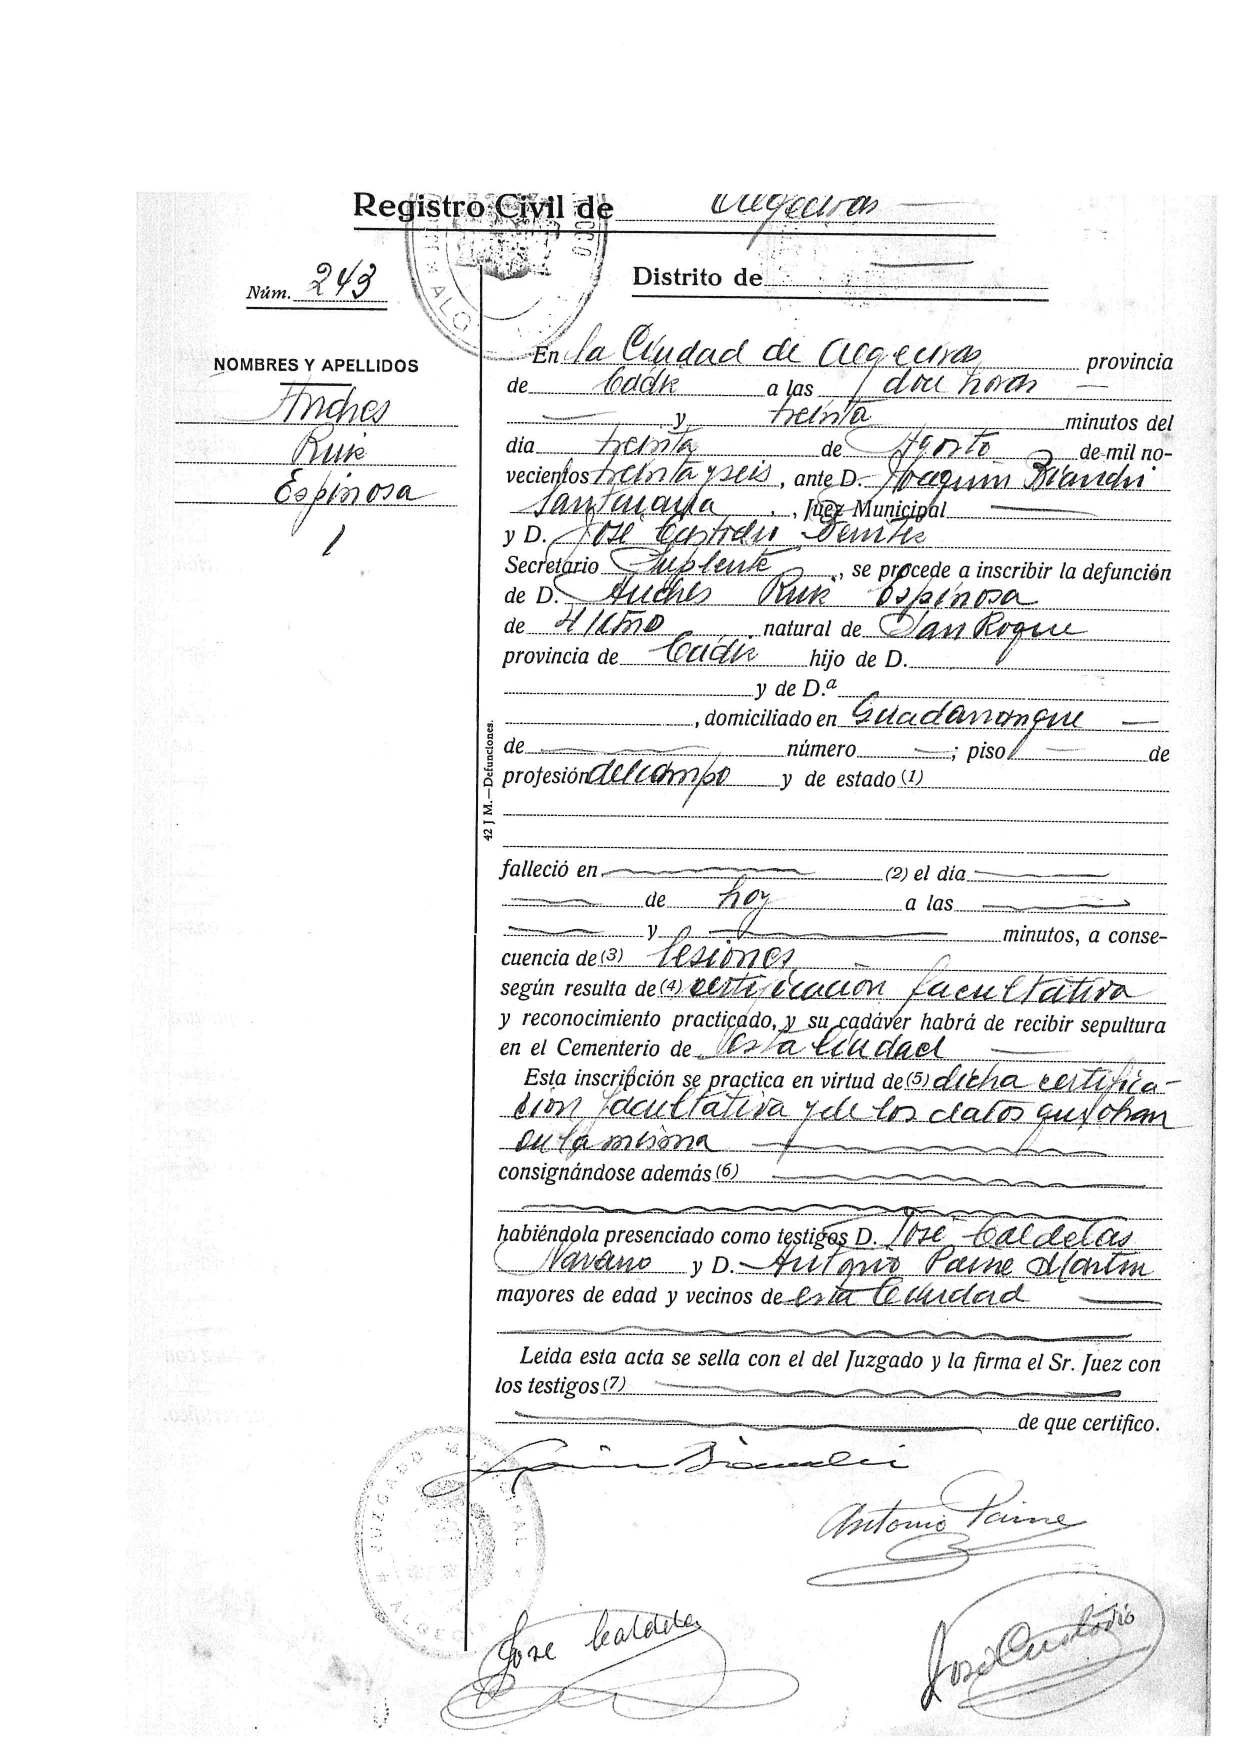 Registro Civil de Algeciras
Núm. 243
Distrito de
NOMBRES Y APELLIDOS
Andrés
Ruiz
Espinosa
En la Ciudad de Algeciras provincia
de Cádiz a las doce horas
y treinta minutos del
día treinta de Agosto de mil no-
vecientos treinta y seis, ante D. Joaquín Bianchi
Santacana, Juez Municipal
y D. José Custodio Benítez
Secretario Suplente, se procede a inscribir la defunción
de D. Andrés Ruiz Espinosa
de natural de San Roque
provincia de Cádiz hijo de D.
y de D.ª
, domiciliado en Guadarranque
de número ; piso de
profesión del campo y de estado (1)
42 J M.—Defunciones.
falleció en (2) el día
de hoy a las
y minutos, a conse-
cuencia de (3) lesiones
según resulta de (4) certificación facultativa
y reconocimiento practicado, y su cadáver habrá de recibir sepultura
en el Cementerio de esta Ciudad
Esta inscripción se practica en virtud de (5) dicha certifica-
ción facultativa y de los datos que obran
en la misma
consignándose además (6)
habiéndola presenciado como testigos D. José Caldelas
Navarro y D. Antonio Paine Martín
mayores de edad y vecinos de esta Ciudad
Leída esta acta se sella con el del Juzgado y la firma el Sr. Juez con
los testigos (7)
de que certifico.
JUZGADO MUNICIPAL
Joaquín Bianchi
Antonio Paine
José Caldelas
José Custodio